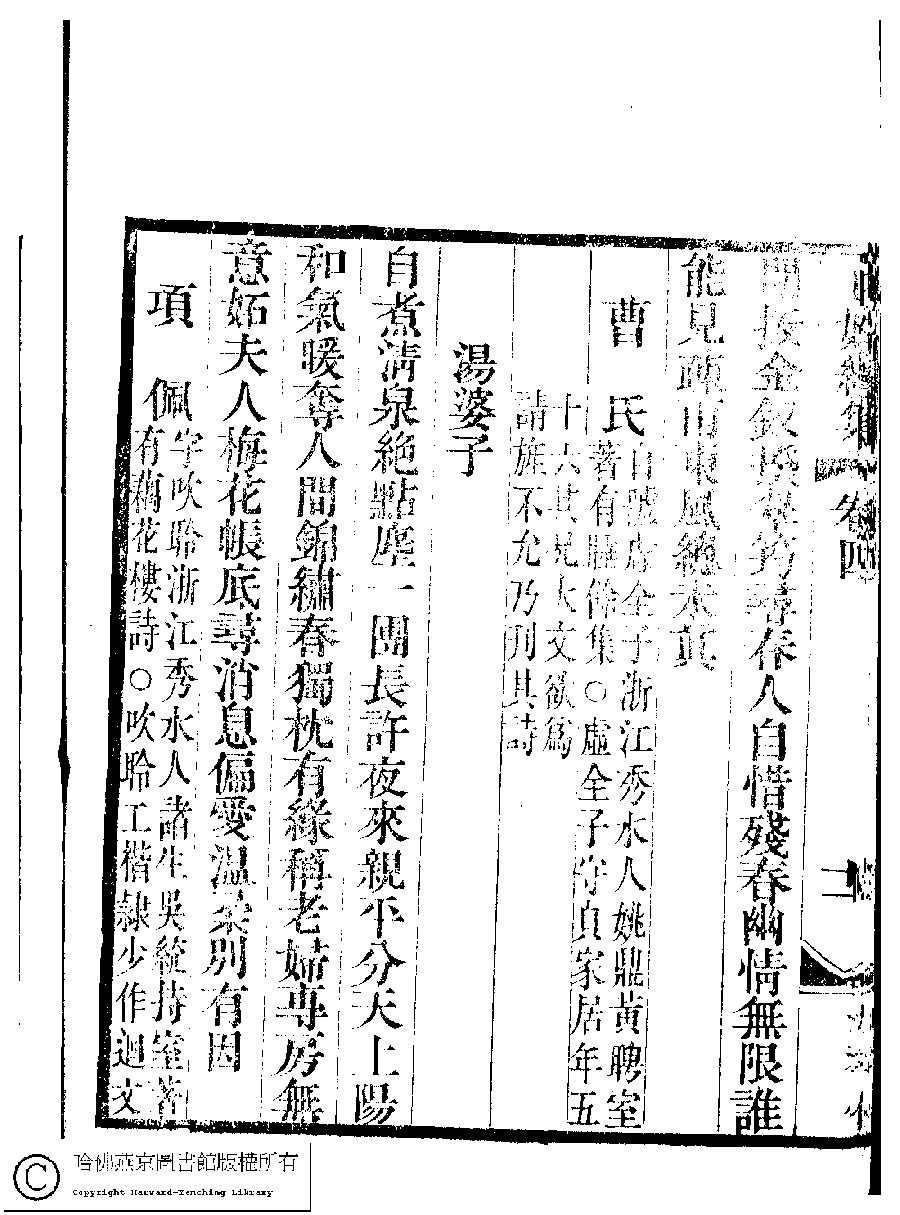 卷四
二
金釵
尋春人自惜殘春幽情無限誰
能見疎雨東風總太真
曹氏自號虛全子浙江秀水人姚鼎黃聘室
著有睡餘集○虛全子守貞家居年五
十六其兄大文欲爲
請旌不允乃刋其詩
湯婆子
自煮清泉絶點塵一團長許夜來親平分天上陽
和氣暖奪人間錦繡春獨枕有緣稱老婦專房無
意妬夫人梅花帳底尋消息偏愛溫柔別有因
項佩字吹聆浙江秀水人諸生吳統持室著
有藕花樓詩○吹聆工楷隸少作迴文
哈佛燕京圖書館版權所有
Copyright Harvard-Yenching Library